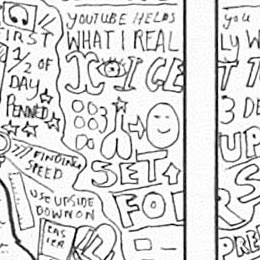 FIRST
1/2 OF
DAY
PENNED
FINDING
SPEED
USE UPSIDE
DOWN ON
EAS
IER
YOUTUBE HELPS
WHAT I REAL
NOTICE
SET
FOR
you
LY W
3 DE
UP
PRE